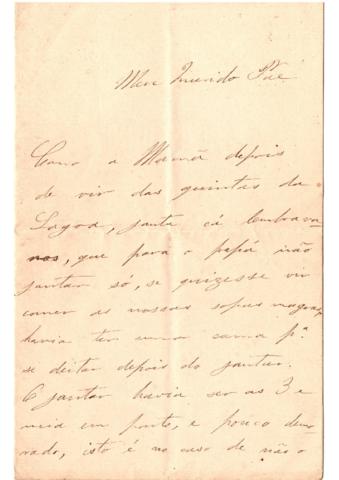 Meu Querido Pae
Como a Mamã depois
de vir das quintas da
Lagoa, janta cá lembrava-
nos, que para o papá não
jantar só, se quizesse vir
comer as nossas sopas magras,
havia ter uma cama pª
se deitar depois do jantar.
O jantar havia ser as 3 e
meia em ponto, e pouco demo-
rado, isto é no caso de não o